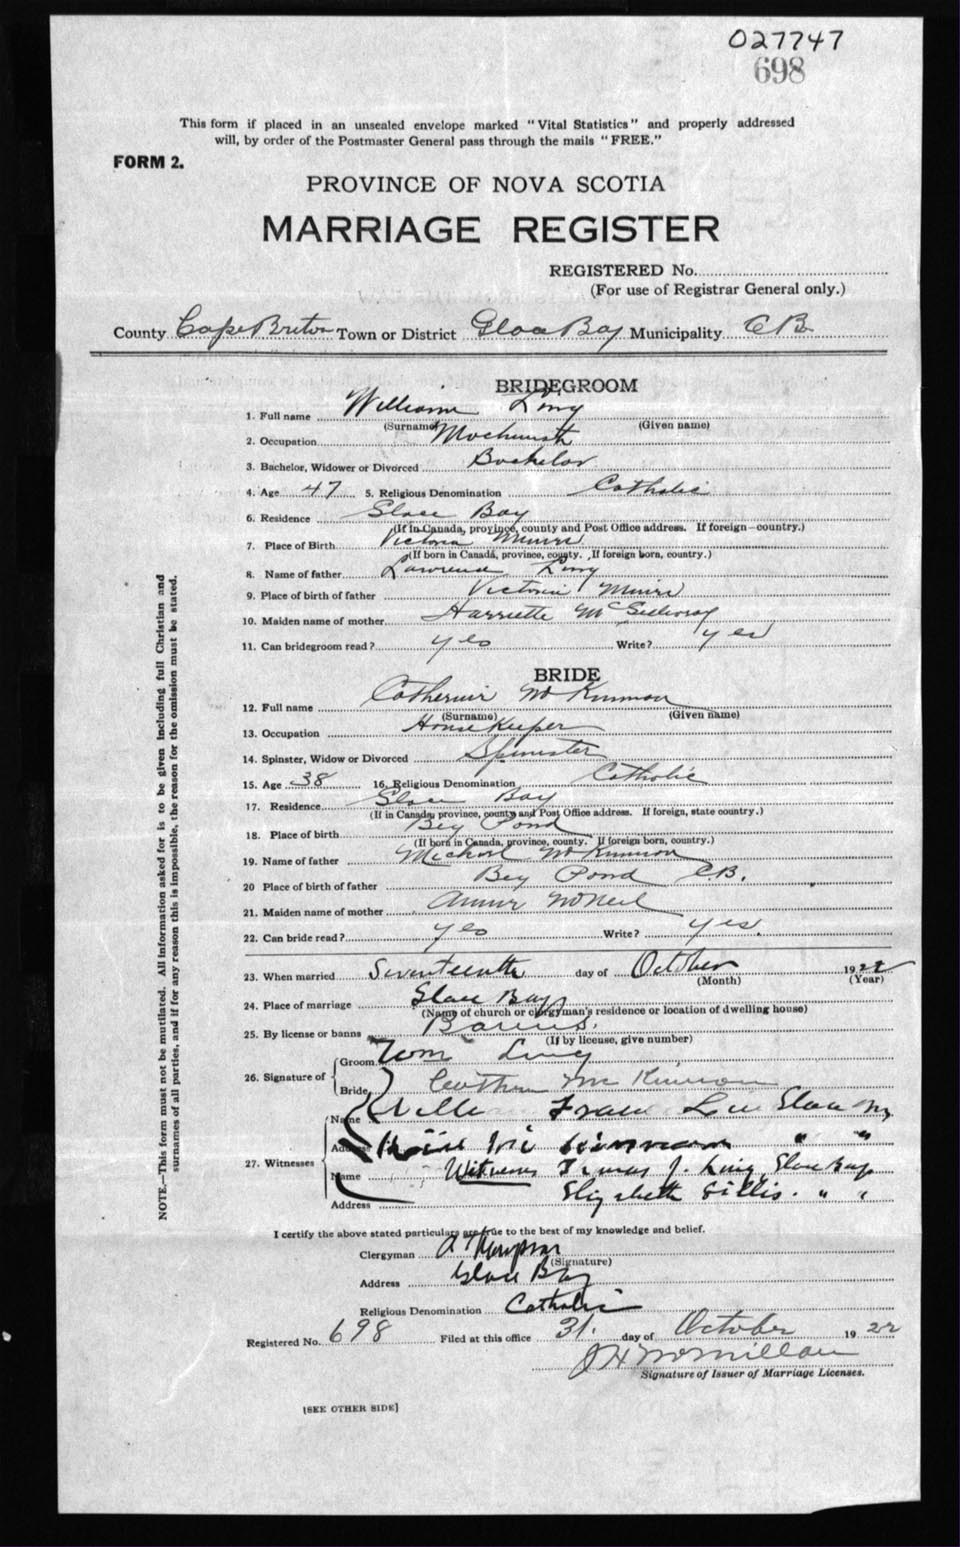 027747
698
This form if placed in an unsealed envelope marked "Vital Statistics" and properly addressed
will, by order of the Postmaster General pass through the mails "FREE."
FORM 2.
PROVINCE OF NOVA SCOTIA
MARRIAGE REGISTER
REGISTERED No.
(For use of Registrar General only.)
County Cape Breton Town or District Glace Bay Municipality C B
BRIDEGROOM
1. Full name William
(Surname) (Given name)
2. Occupation
3. Bachelor, Widower or Divorced Bachelor
4. Age 47 5. Religious Denomination Catholic
6. Residence Glace Bay
(If in Canada, province, county and Post Office address. If foreign—country.)
7. Place of Birth Victoria Mines
(If born in Canada, province, county. If foreign born, country.)
8. Name of father Lawrence
9. Place of birth of father Victoria Mines
10. Maiden name of mother Harriette
11. Can bridegroom read? yes Write? yes
BRIDE
12. Full name Catherine McKinnon
(Surname) (Given name)
13. Occupation House Keeper
14. Spinster, Widow or Divorced Spinster
15. Age 38 16. Religious Denomination Catholic
17. Residence Glace Bay
(If in Canada, province, county and Post Office address. If foreign, state country.)
18. Place of birth Big Pond
(If born in Canada, province, county. If foreign born, country.)
19. Name of father Michael McKinnon
20 Place of birth of father Big Pond C.B.
21. Maiden name of mother Annie McNeil
22. Can bride read? yes Write? yes.
23. When married Seventeenth day of October 1922
(Month) (Year)
24. Place of marriage Glace Bay
(Name of church or clergyman's residence or location of dwelling house)
25. By license or banns Banns.
(If by license, give number)
26. Signature of
Groom
Bride McKinnon
27. Witnesses
Name Glace Bay
Address " "
Name Witness Thomas J. Glace Bay
Address Elizabeth Gillis. " "
I certify the above stated particulars are true to the best of my knowledge and belief.
Clergyman
(Signature)
Address Glace Bay
Religious Denomination Catholic
Registered No. 698 Filed at this office 31. day of October 1922
J H McMillan
Signature of Issuer of Marriage Licenses.
[SEE OTHER SIDE]
NOTE.—This form must not be mutilated. All information asked for is to be given including full Christian and
surnames of all parties, and if for any reason this is impossible, the reason for the omission must be stated.